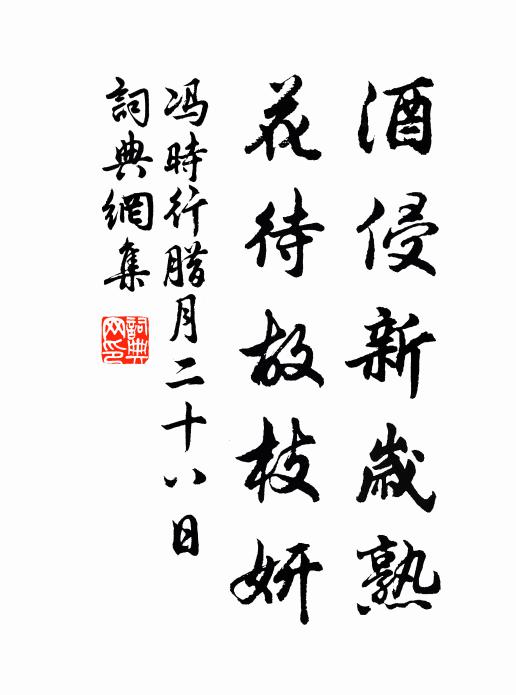 酒侵新歲熟
花待故枝妍
冯時行腊月二十八日
詞典網集
詞典網印